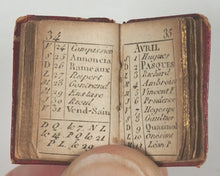 34
V 24 Compassion
S 25 Annoncia
D 26 Rameaux
L 27 Rupert
M 28 Gontrand
M 29 Eustase
J 30 Rieul
V 31 Vend-Sain
P Q le 7 N L
35
AVRIL
1 Hugues
D 2 PASQUES
L 3 Richard
M 4 Ambroise
M 5 Vincent F
J 6 Prudence
V 7 Hegesipe
S 8 Gautier
D 9 Quasimod
L 10 Onesime
M 11 Léon P